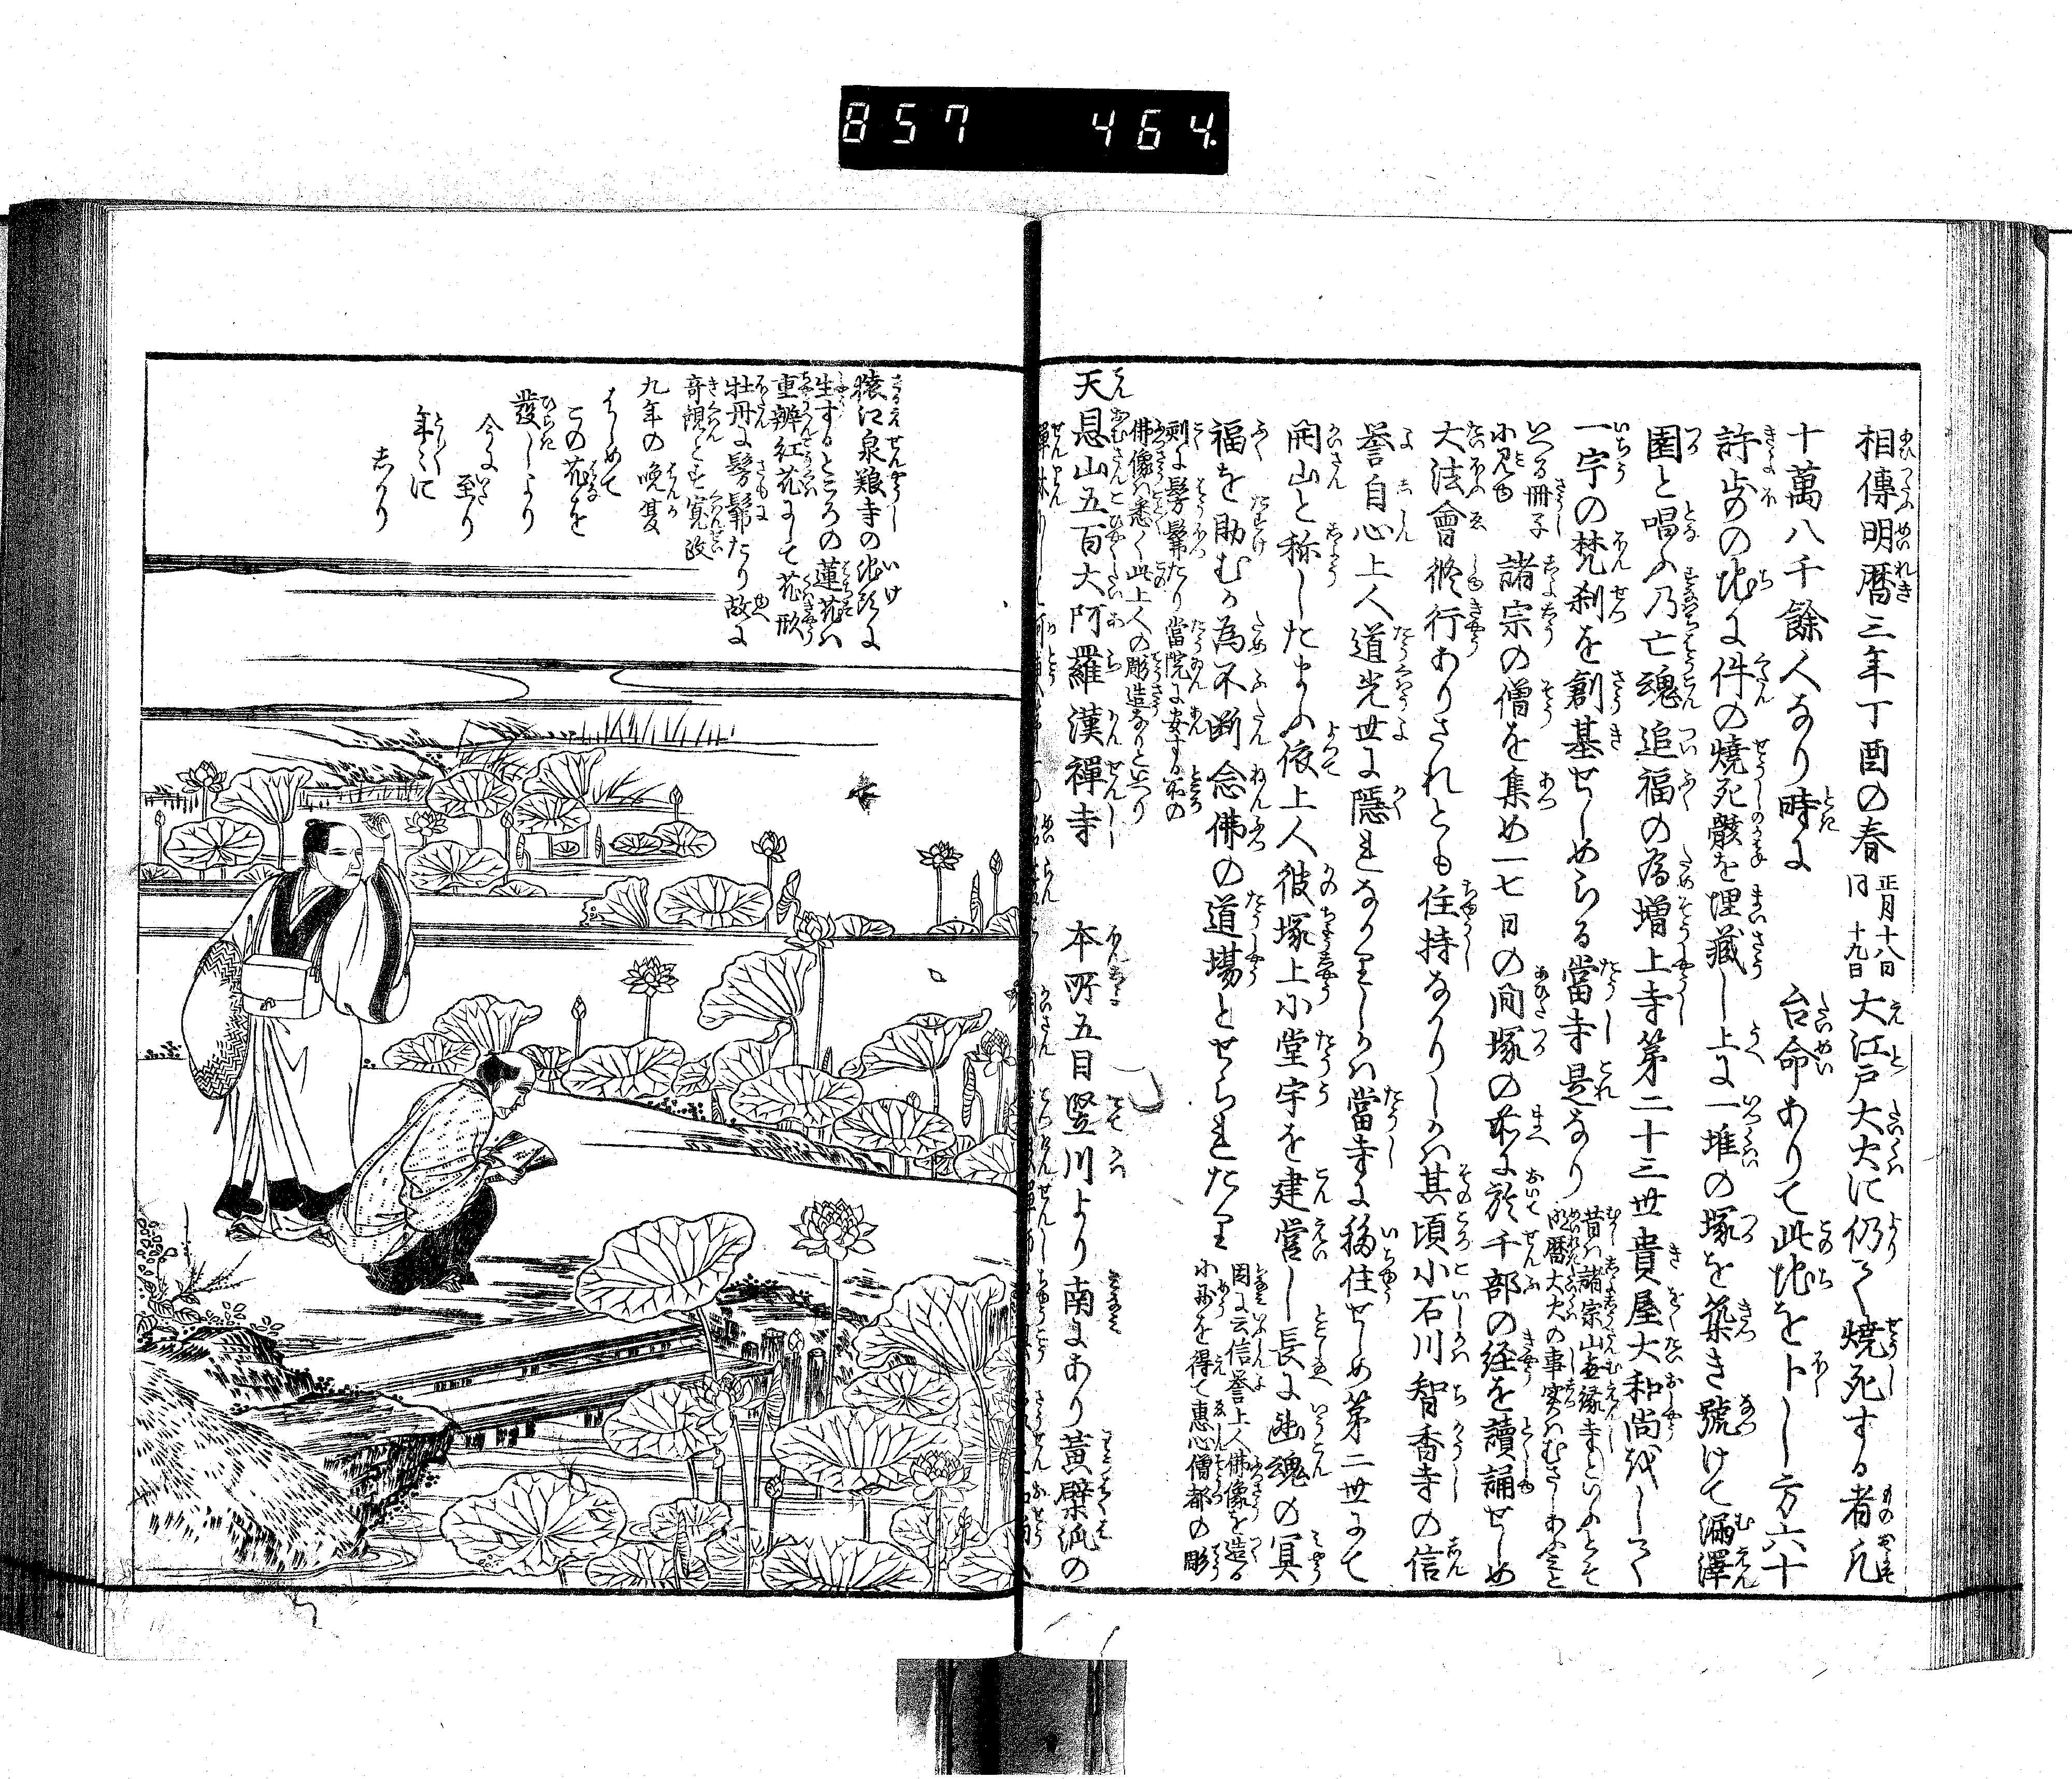 857 464.
相傳明暦三年丁酉の春
正月十八日
同十九日
大江戸大火に仍て焼死する者凡
十萬八千餘人なり時に 台命ありて此地を卜し方六十
許歩の地に件の焼死骸を埋藏し上に一堆の塚を築き號けて漏澤
園と唱ふ乃亡魂追福の為増上寺第二十三世貴屋大和尚をして
一宇の梵刹を創基せしめらる當寺是なり
昔は諸宗山無縁寺といふとそ
明暦大火の事実はむさしあふみと
いへる冊子
に見ゆ
諸宗の僧を集め一七日の間塚の前に於千部の経を讀誦せしめ
大法會修行ありされとも住持なかりしかは其頃小石川智香寺の信
誉自心上人道光世に隠れなかりしかは當寺に移住せしめ第二世にて
開山と称したまふ依上人彼塚上小堂宇を建営し長に幽魂の冥
福を助むる為不断念佛の道場とせられたり
因に云信誉上人佛像を造る
に妙を得て惠心僧都の彫
刻に髣髴たり當院に安する所の
佛像は悉く此上人の彫造なりといへり
天恩山五百大阿羅漢禅寺 本所五目竪川より南にあり黄檗派の
猿江泉艱寺の池頭に
生するところの蓮花は
重瓣紅花にして花形
牡丹に髣髴たり故に
奇観とす寛政
九年の晩夏
はしめて
この花を
發しより
今に至り
年々に
しかり